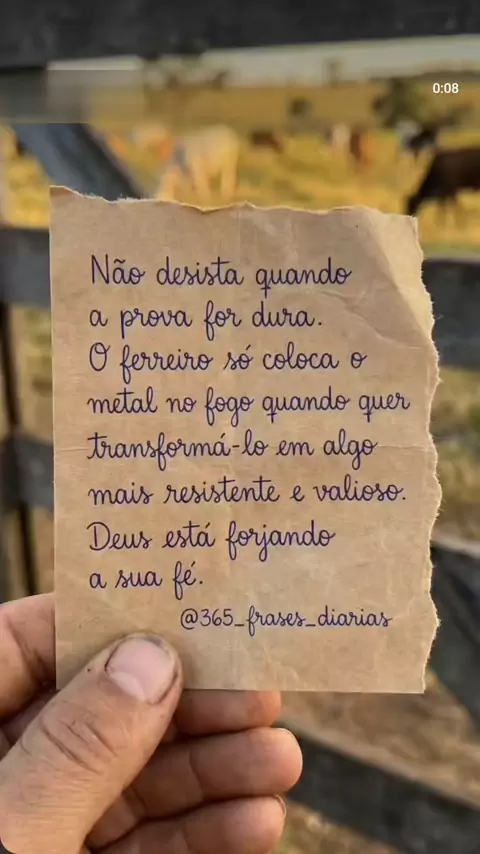 0:08
Não desista quando
a prova for dura.
O ferreiro só coloca o
metal no fogo quando quer
transformá-lo em algo
mais resistente e valioso.
Deus está forjando
a sua fé.
@365_frases_diarias